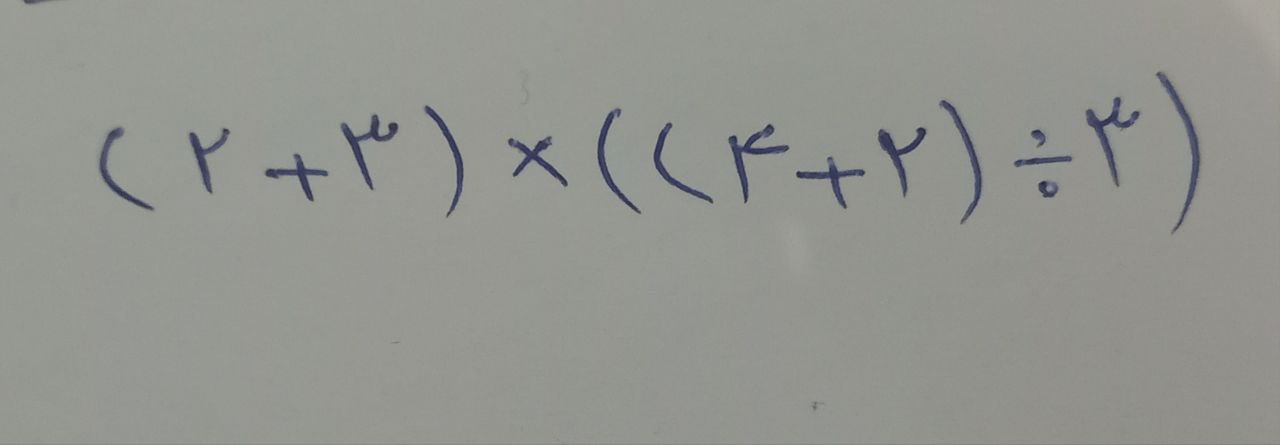 (۲+۳)×((۴+۲)÷۳)